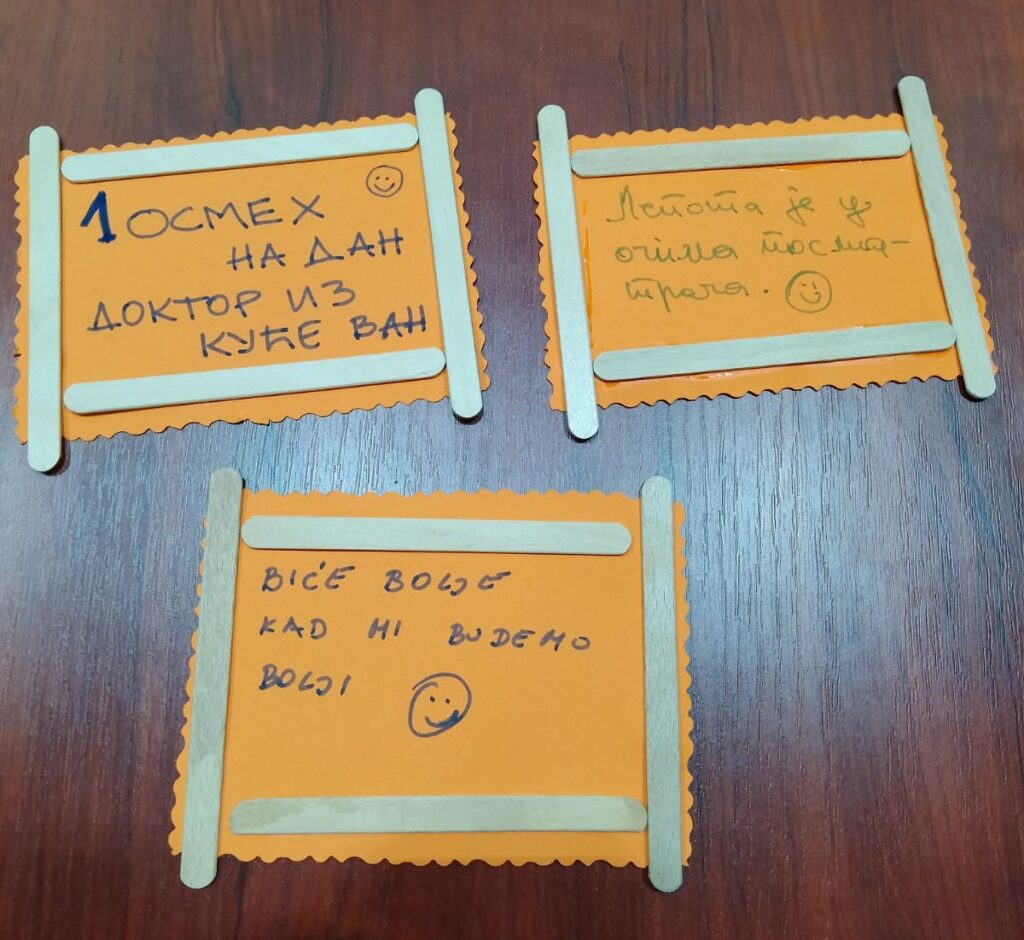 1 ОСМЕХ
НА ДАН
ДОКТОР ИЗ
КУЋЕ ВАН
Лепота је у
очима посма-
трача.
BIĆE BOLJE
KAD MI BUDEMO
BOLJI